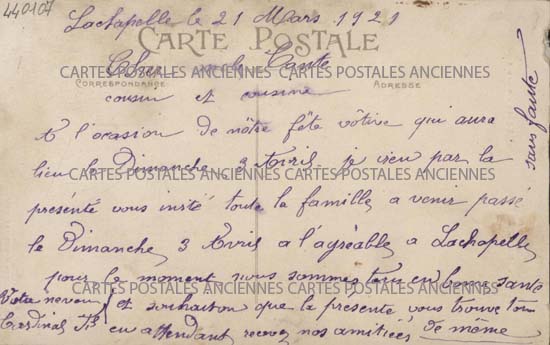 440107
Lachapelle le 21 Mars 1921
CARTE POSTALE
Cher oncle Tante
CARTES POSTALES ANCIENNES CARTES POSTALES ANCIENNES
CORRESPONDANCE ADRESSE
cousin et cousine
A l'ocasion de nôtre fête vôtive qui aura
lieu le Dimanche 3 Avril je viens par la
CARTES POSTALES ANCIENNES CARTES POSTALES ANCIENNES
présente vous invité toute la famille a venir passé
le Dimanche 3 Avril a l'agréable a Lachapelle
pour le moment nous sommes tous en bonne santé
CARTES POSTALES ANCIENNES CARTES POSTALES ANCIENNES
et souhaiton que la présente vous trouve tous
en attendant recevez nos amitiées de même
Votre neveu
Cardinal
sans faute